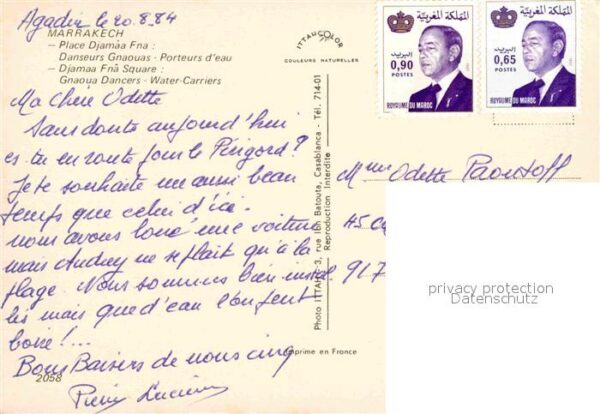 Agadir le 20.8.84
MARRAKECH
– Place Djamâa Fna :
Danseurs Gnaouas - Porteurs d'eau
– Djamaa Fnâ Square :
Gnaoua Dancers - Water-Carriers
Ma Chère Odette
Sans doute aujourd'hui
es-tu en route pour le Périgord ?
Je te souhaite un aussi beau
temps que celui d'ici.
nous avons loué une voiture
mais Audrey ne se plait qu'à la
plage. Nous sommes bien instal
lés mais que d'eau l'on peut
boire !...
Bons Baisers de nous cinq
Pierre Lucienne
2058
Imprime en France
ITTAH COLOR
COULEURS NATURELLES
Photo ITTAH - 3, rue Ibn Batouta, Casablanca - Tél. 714-01
Reproduction Interdite
المملكة المغربية
البريد
0,90
POSTES
ROYAUME DU MAROC
المملكة المغربية
البريد
0,65
POSTES
ROYAUME DU MAROC
Mme Odette
45
917
privacy protection
Datenschutz